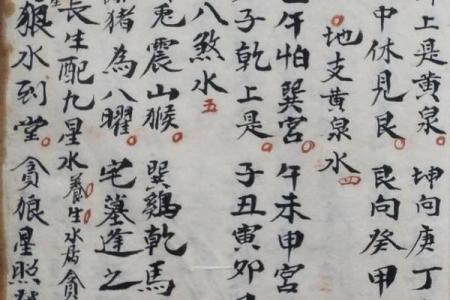 上是黄泉。坤向庚丁
中休見艮。艮向癸甲
地支黄泉水四
午怕巽宫。午未申宫
子乾上是。子丑寅卯
八煞水五
兔震山猴。巽鷄乾馬
猪為八曜。宅墓逢之
長生配九星水養生水居貪
狼水到堂。貪狼星照